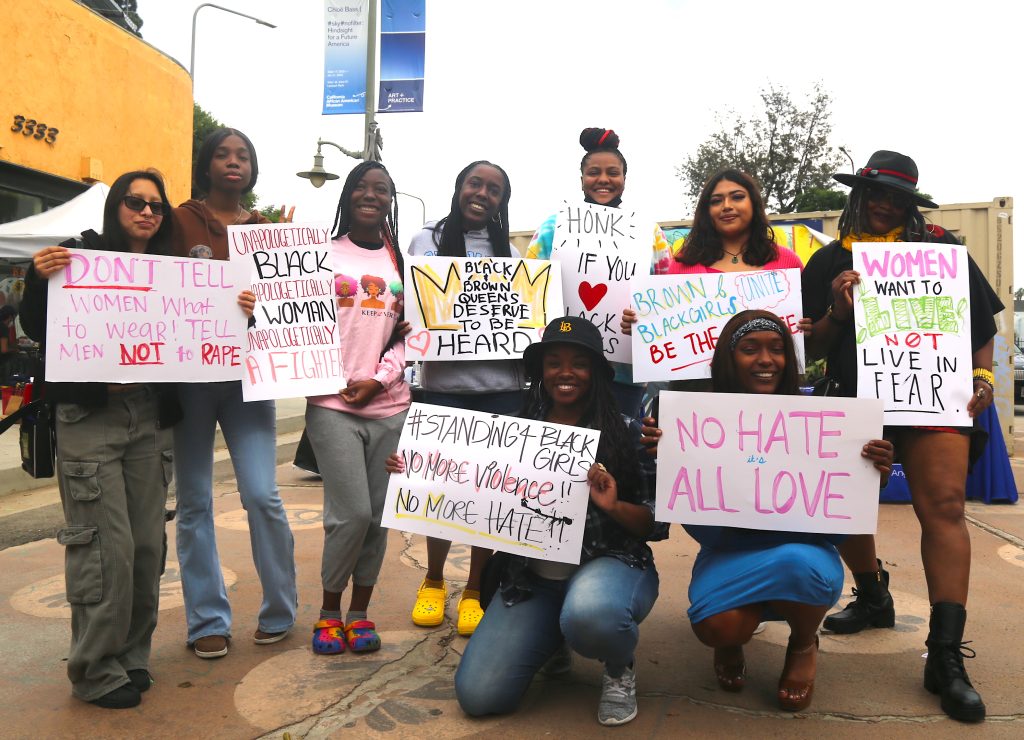 Chloë Bass:
#sky#nofilter:
Hindsight
for a Future
America
California
African American
Museum
ART +
PRACTICE
3333
DON'T TELL
WOMEN WHAT
to WEAR! TELL
MEN NOT to RAPE
UNAPOLOGETICALLY
BLACK
UNAPOLOGETICALLY
WOMAN
UNAPOLOGETICALLY
A FIGHTER
BLACK
& BROWN
QUEENS
DESERVE
TO BE
HEARD
HONK
IF YOU
BLACK
BROWN &
BLACKGIRLS
UNITE
BE THE
WOMEN
WANT TO
LIVE
NOT
LIVE IN
FEAR.
LB
#STANDING4 BLACK
GIRLS
NO MORE VIOLENCE!!
NO MORE HATE!!
NO HATE
it's
ALL LOVE